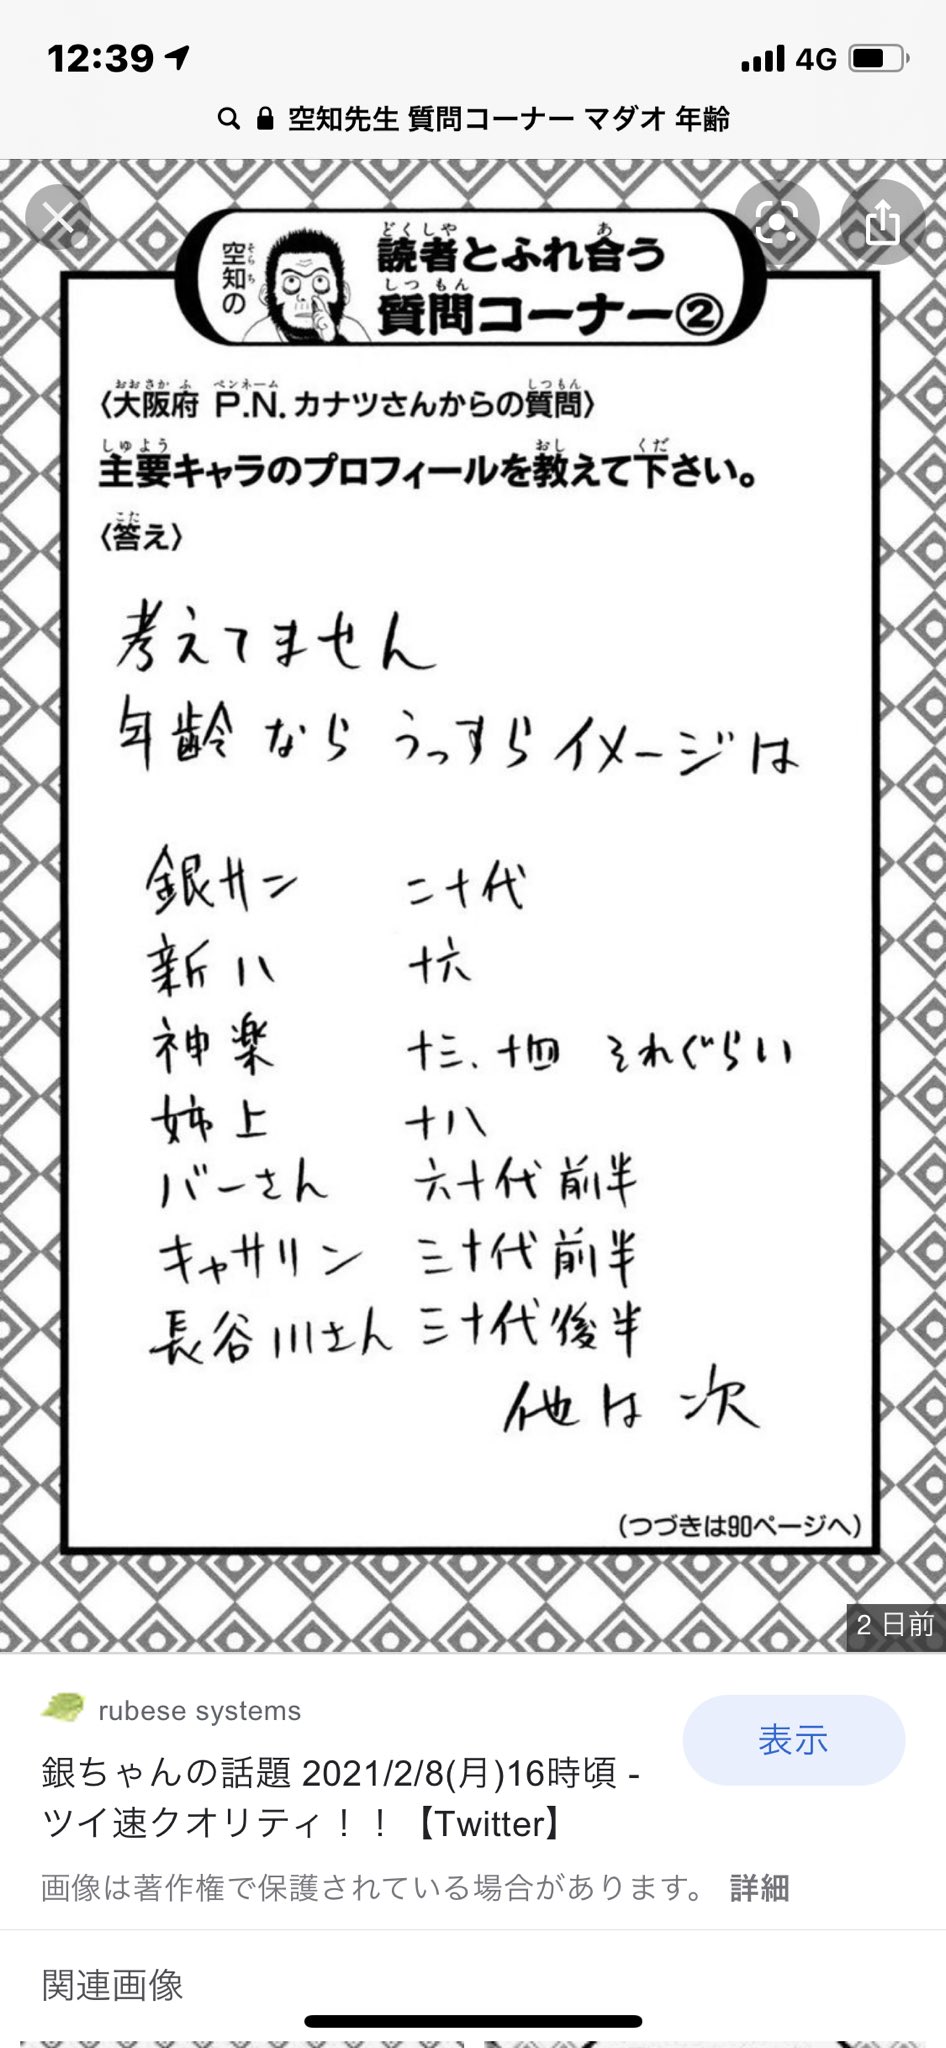 12:39
4G
空知先生 質問コーナー マダオ 年齢
空知の
そらち
どくしゃ あ
読者とふれ合う
しつもん
質問コーナー②
おおさかふ ペンネーム しつもん
〈大阪府 P.N.カナツさんからの質問〉
しゅよう おし くだ
主要キャラのプロフィールを教えて下さい。
こた
〈答え〉
考えてません
年齢なら うっすらイメージは
銀サン 二十代
新八 十六
神楽 十三、十四 それぐらい
姉上 十八
バーさん 六十代前半
キャサリン 三十代前半
長谷川さん 三十代後半
他は次
(つづきは90ページへ)
2 日前
rubese systems
表示
銀ちゃんの話題 2021/2/8(月)16時頃 -
ツイ速クオリティ！！【Twitter】
画像は著作権で保護されている場合があります。 詳細
関連画像